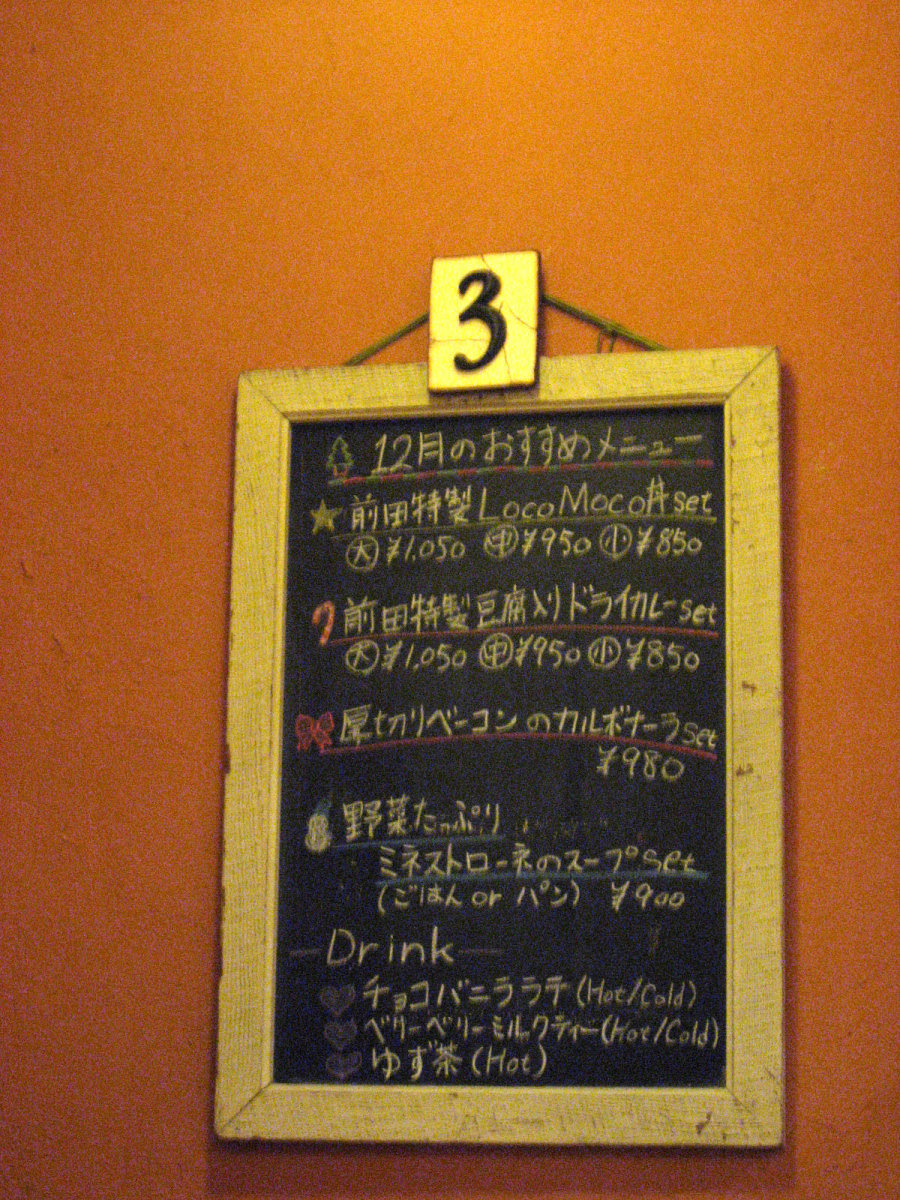 3
12月のおすすめメニュー
前田特製 Loco Moco丼set
大 ¥1,050 中 ¥950 小 ¥850
前田特製豆腐入りドライカレーset
大 ¥1,050 中 ¥950 小 ¥850
厚切りベーコンのカルボナーラset
¥980
野菜たっぷり
ミネストローネのスープset
(ごはん or パン) ¥900
—Drink—
チョコバニララテ (Hot/Cold)
ベリーベリーミルクティー (Hot/Cold)
ゆず茶 (Hot)